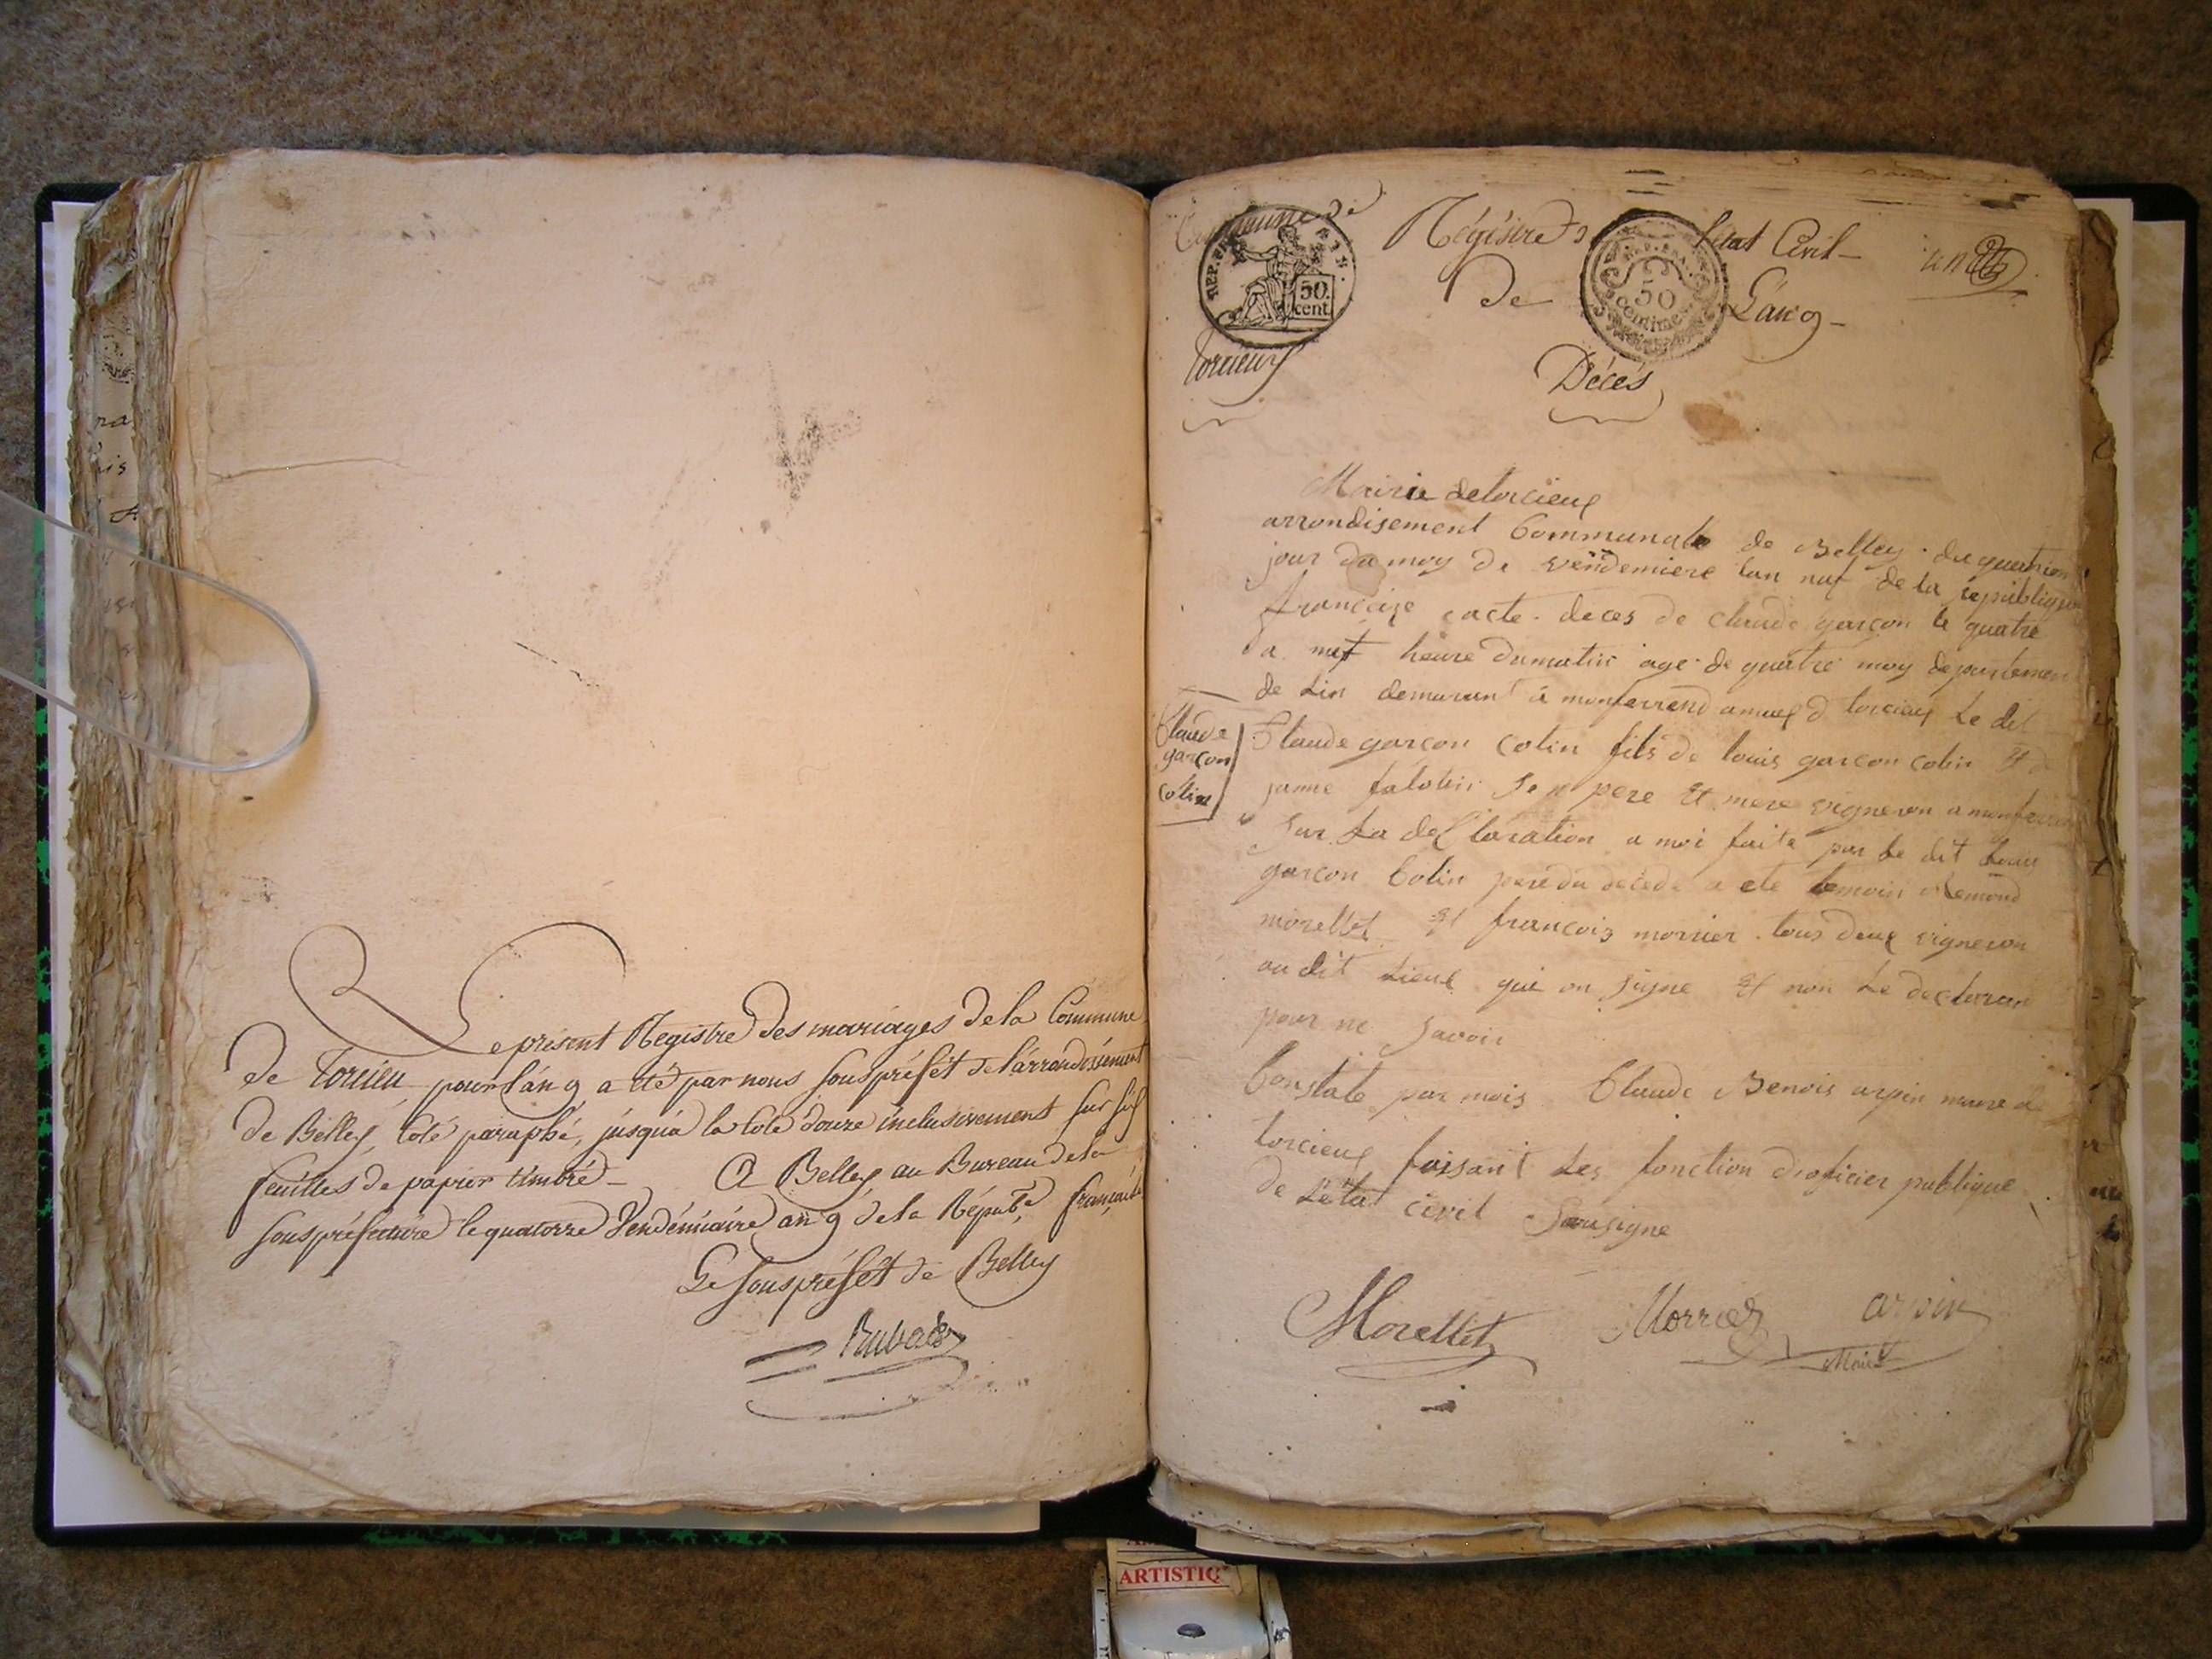 Le présent Régistre des mariages de la Commune
de Torcieu pour l'an 9 a été par nous souspréfét de l'arrondissement
de Belley, coté paraphé, jusqu'à la cote douze inclusivement sur six
feuilles de papier timbré — A Belley au Bureau de la
souspréfecture le quatorze Vendémiaire an 9 de la Répub.e française
Le souspréfét de Belley
Commune de Régistre de létat Civil —
REP. FRA.
50.
cent.
50
centimes
de Lan 9 —
torcieux
Décés
Mairie de torcieux
arrondisement Communale de Belley . du
jour du moy de vendemiere lan nuf de la republique
francaize acte . deces de claude garçon le quatre
a nuf heure du matin age de quatre moy departement
de Lin demurant a monferrend de torcieux Le dit
Claude garcon colin fils de louis garcon colin Et d
Claude
garçon
coline
janne pere Et mere vigneron a monferrend
sur La declaration a moi faite par Le dit Louis
garcon Colin pere du decede a ete temoin Remond
morellet Et francois morrier . tous deux vigneron
au dit Lieux qui on signe Et non Le declaran
pour ne savoir
Constate par mois Claude Benois arpin maire de
torcieux faisant Les fonction d'oficier publique
de Letat civil Sousigne
Morellet Morrier arpin
Maire
ARTISTIQ